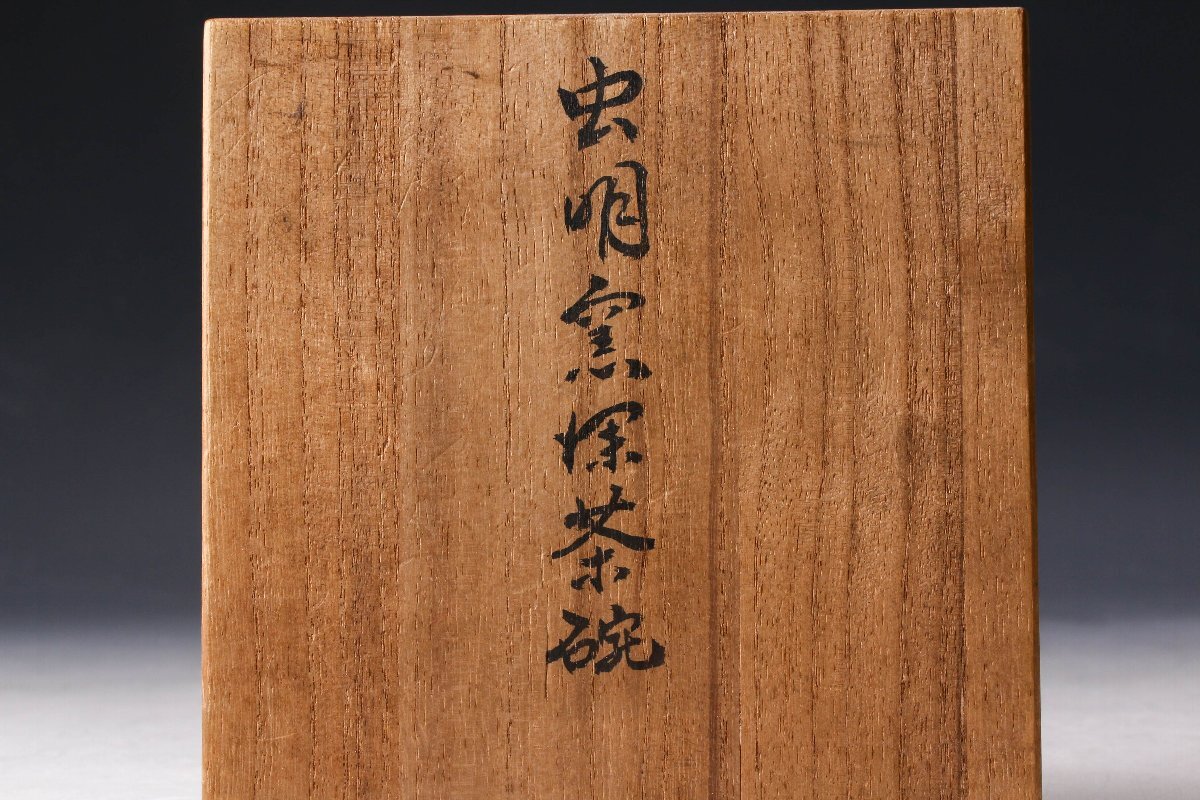 虫明窯深茶碗